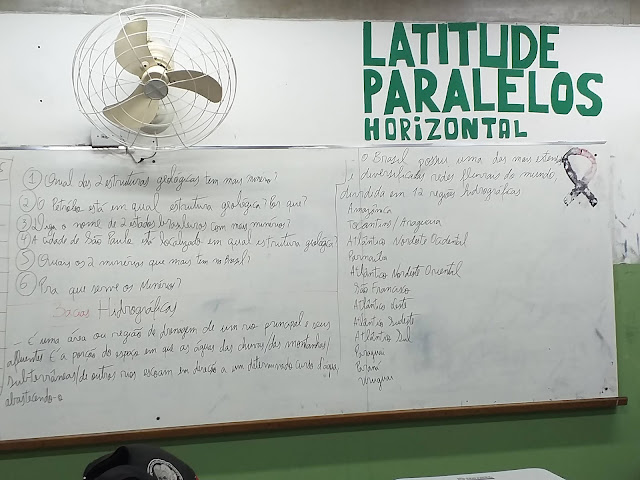 LATITUDE
PARALELOS
HORIZONTAL
① Qual das 2 estruturas geológicas tem mais minério?
② O Petróleo está em qual estrutura geológica? Por que?
③ Diga o nome de 2 estados brasileiros com mais minérios?
④ A cidade de São Paulo está localizada em qual estrutura geológica?
⑤ Quais os 2 minérios que mais tem no Brasil?
⑥ Pra que serve os minérios?
Bacias Hidrográficas
- É uma área ou região de drenagem de um rio principal e seus
afluentes É a porção do espaço em que as águas das chuvas/das montanhas/
subterrâneas/de outros rios escoam em direção a um determinado curso d'água,
abastecendo-o
O Brasil possui uma das mais extensas
diversificadas redes fluviais do mundo,
dividida em 12 regiões hidrográficas
Amazônica
Tocantins/Araguaia
Atlântico Nordeste Ocidental
Parnaíba
Atlântico Nordeste Oriental
São Francisco
Atlântico Leste
Atlântico Sudeste
Atlântico Sul
Paraguai
Paraná
Uruguai